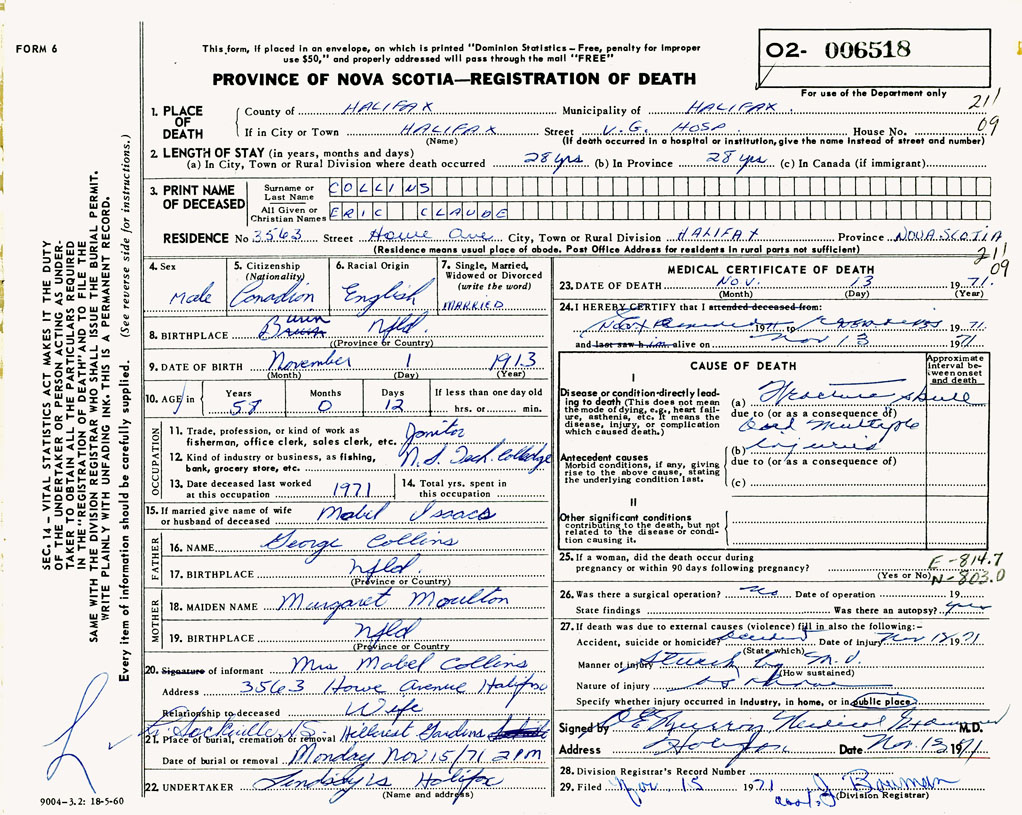 FORM 6
This form, if placed in an envelope, on which is printed "Dominion Statistics – Free, penalty for improper
use $50," and properly addressed will pass through the mail "FREE"
O2- 006518
PROVINCE OF NOVA SCOTIA—REGISTRATION OF DEATH
For use of the Department only
211
09
1. PLACE OF DEATH
County of HALIFAX Municipality of HALIFAX
If in City or Town HALIFAX Street V.G. HOSP. House No.
(Name) (If death occurred in a hospital or institution, give the name instead of street and number)
2. LENGTH OF STAY (in years, months and days)
(a) In City, Town or Rural Division where death occurred 28 yrs (b) In Province 28 yrs (c) In Canada (if immigrant)
3. PRINT NAME OF DECEASED
Surname or Last Name COLLINS
All Given or Christian Names ERIC CLAUDE
RESIDENCE No 3563 Street Howe Ave City, Town or Rural Division HALIFAX Province NOVA SCOTIA
(Residence means usual place of abode. Post Office Address for residents in rural parts not sufficient)
211
09
4. Sex Male
5. Citizenship (Nationality) Canadian
6. Racial Origin English
7. Single, Married, Widowed or Divorced (write the word) MARRIED
8. BIRTHPLACE Burin Nfld.
(Province or Country)
9. DATE OF BIRTH November 1 1913
(Month) (Day) (Year)
10. AGE in Years 58 Months 0 Days 12 If less than one day old hrs. or min.
OCCUPATION
11. Trade, profession, or kind of work as fisherman, office clerk, sales clerk, etc. Janitor
12. Kind of industry or business, as fishing, bank, grocery store, etc. N.S. Tech. College
13. Date deceased last worked at this occupation 1971
14. Total yrs. spent in this occupation
15. If married give name of wife or husband of deceased Mabel Isaacs
FATHER
16. NAME George Collins
17. BIRTHPLACE Nfld.
(Province or Country)
MOTHER
18. MAIDEN NAME Margaret Moulton
19. BIRTHPLACE Nfld
(Province or Country)
20. Signature of informant Mrs Mabel Collins
Address 3563 Howe Avenue Halifax
Relationship to deceased Wife
Sackville N.S. Hillcrest Gardens
21. Place of burial, cremation or removal
Date of burial or removal Monday Nov 15/71 2 PM
22. UNDERTAKER Lindsay's Halifax
(Name and address)
MEDICAL CERTIFICATE OF DEATH
23. DATE OF DEATH Nov. 13 1971.
(Month) (Day) (Year)
24. I HEREBY CERTIFY that I attended deceased from:
1971 to 1971
and last saw him alive on Nov 13 1971
CAUSE OF DEATH
Approximate interval between onset and death
I
Disease or condition directly leading to death (This does not mean the mode of dying, e.g., heart failure, asthenia, etc. It means the disease, injury, or complication which caused death.)
(a) Fracture skull
due to (or as a consequence of)
and Multiple
(b) Injuries
due to (or as a consequence of)
(c)
Antecedent causes
Morbid conditions, if any, giving rise to the above cause, stating the underlying condition last.
II
Other significant conditions
contributing to the death, but not related to the disease or condition causing it.
25. If a woman, did the death occur during
pregnancy or within 90 days following pregnancy?
(Yes or No)
E-814.7
N-803.0
26. Was there a surgical operation? No Date of operation 19
State findings Was there an autopsy? yes
27. If death was due to external causes (violence) fill in also the following:-
Accident, suicide or homicide? Accident Date of injury Nov 1971
(State which)
Manner of injury Struck by M.V.
(How sustained)
Nature of injury as above
Specify whether injury occurred in industry, in home, or in public place
Signed by Murray Medical Examiner M.D.
Address Halifax Date Nov. 15 1971
28. Division Registrar's Record Number
29. Filed Nov 15 1971 Bowman
(Division Registrar)
SEC. 14 – VITAL STATISTICS ACT MAKES IT THE DUTY
OF THE UNDERTAKER OR PERSON ACTING AS UNDER-
TAKER TO OBTAIN ALL THE PARTICULARS REQUIRED
IN THE "REGISTRATION OF DEATH" AND TO FILE THE
SAME WITH THE DIVISION REGISTRAR WHO SHALL ISSUE THE BURIAL PERMIT.
WRITE PLAINLY WITH UNFADING INK. THIS IS A PERMANENT RECORD.
Every item of information should be carefully supplied. (See reverse side for instructions.)
9004–3.2: 18-5-60